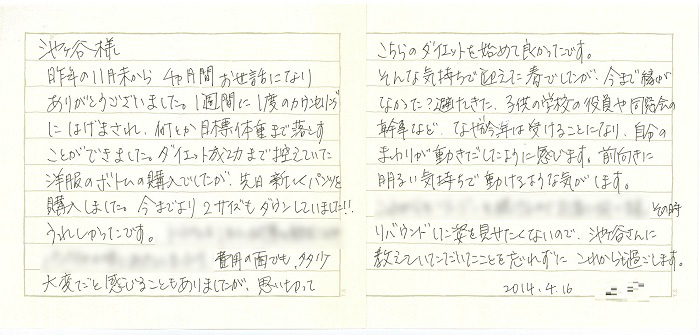 池ヶ谷様
昨年の11月末から 4ヶ月間 お世話になり
ありがとうございました。1週間に1度のカウンセリング
にはげまされ、何とか目標体重まで落とす
ことができました。ダイエット成功まで控えていた
洋服のボトムの購入でしたが、先日新しくパンツを
購入しました。今までより2サイズもダウンしていました!!
うれしかったです。
費用の面でも、
大変だと感じることもありましたが、思いきって
こちらのダイエットを始めて良かったです。
そんな気持ちで迎えた春でしたが、今まで縁が
なかった?避けてきた、子供の学校の役員や同窓会の
幹事など、なぜか今年は受けることになり、自分の
まわりが動きだしたように感じます。前向きに
明るい気持ちで動けるような気がします。
その時
リバウンドした姿を見せたくないので、池ヶ谷さんに
教えていただいたことを忘れずに これからも過ごします。
2014.4.16